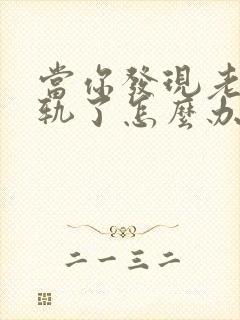 當你發現老
軌了怎麼办
二一三二